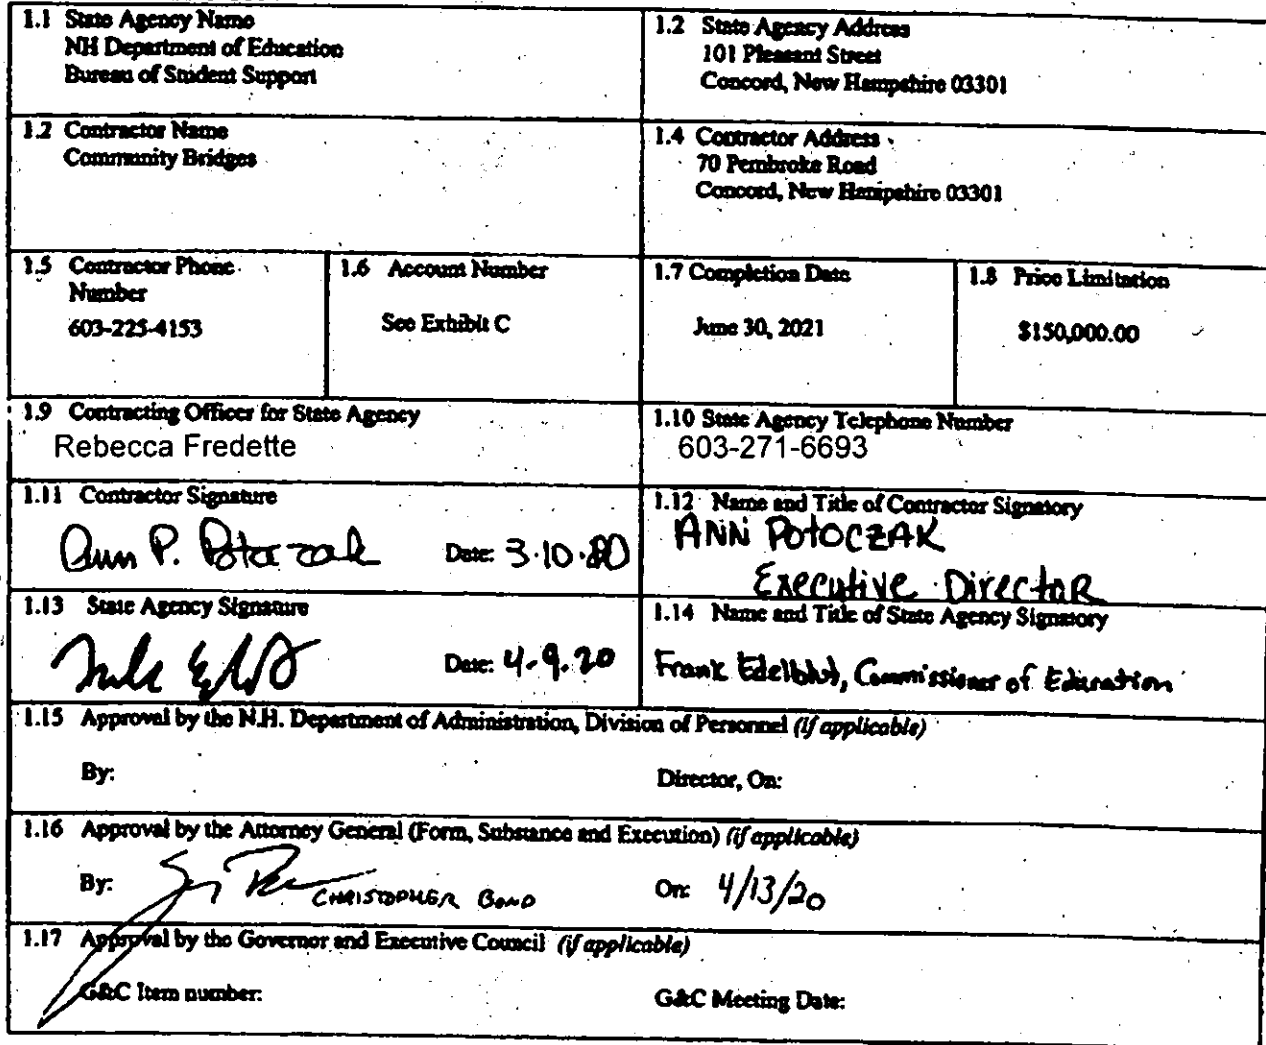 1.1 State Agency Name
NH Department of Education
Bureau of Student Support
1.2 State Agency Address
101 Pleasant Street
Concord, New Hampshire 03301
1.2 Contractor Name
Community Bridges
1.4 Contractor Address
70 Pembroke Road
Concord, New Hampshire 03301
1.5 Contractor Phone
Number
603-225-4153
1.6 Account Number
See Exhibit C
1.7 Completion Date
June 30, 2021
1.8 Price Limitation
$150,000.00
1.9 Contracting Officer for State Agency
Rebecca Fredette
1.10 State Agency Telephone Number
603-271-6693
1.11 Contractor Signature
Ann P. Potoczak Date: 3.10.20
1.12 Name and Title of Contractor Signatory
ANN POTOCZAK
Executive Director
1.13 State Agency Signature
Date: 4.9.20
1.14 Name and Title of State Agency Signatory
Frank Edelblut, Commissioner of Education
1.15 Approval by the N.H. Department of Administration, Division of Personnel (if applicable)
By: Director, On:
1.16 Approval by the Attorney General (Form, Substance and Execution) (if applicable)
By: CHRISTOPHER BOND On: 4/13/20
1.17 Approval by the Governor and Executive Council (if applicable)
G&C Item number: G&C Meeting Date: